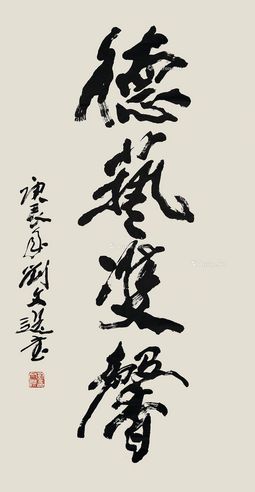 德藝雙馨
庚辰夏劉文選書